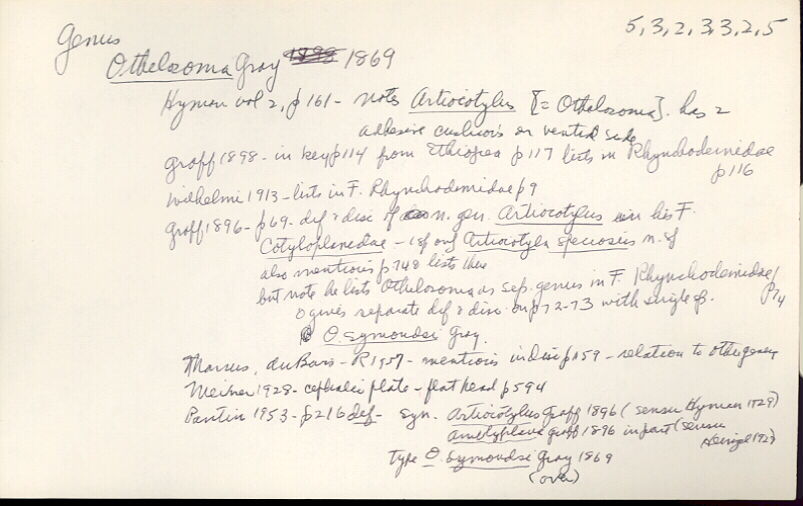 5, 3, 2, 3, 3, 2, 5
Genus
Othelosoma Gray 1898 1869
Hyman vol 2, p 161 - notes Artiocotylus [= Othelosoma]. has 2
adhesive cushions on ventral side
Graff 1898 - in key p 114 from Ethiopea p 117 lists in Rhynchodemidae
p 116
Wilhelmi 1913 - lists in F. Rhynchodemidae p 9
Graff 1896 - p 69 - def & disc of n. gen. Artiocotylus in his F.
Cotyloplanidae - 1 sp only Artiocotylus speciosus n. sp
also mentions p 748 lists
but note he lists Othelosoma as sep. genus in F. Rhynchodemidae /
& gives separate def & disc. on p 72-73 with single sp. p 74
O. symondsi Gray.
Marcus, du Bois - R 1957 - mentions in disc p 159 - relation to other genera
Meixner 1928 - cephalic plate - flat head p 594
Pantin 1953 - p 216 def - syn. Artiocotylus Graff 1896 (sensu Hyman 1929)
Amblyplana Graff 1896 in part (sensu
Heinzel 1929)
type O. symondsi Gray 1869
(over)